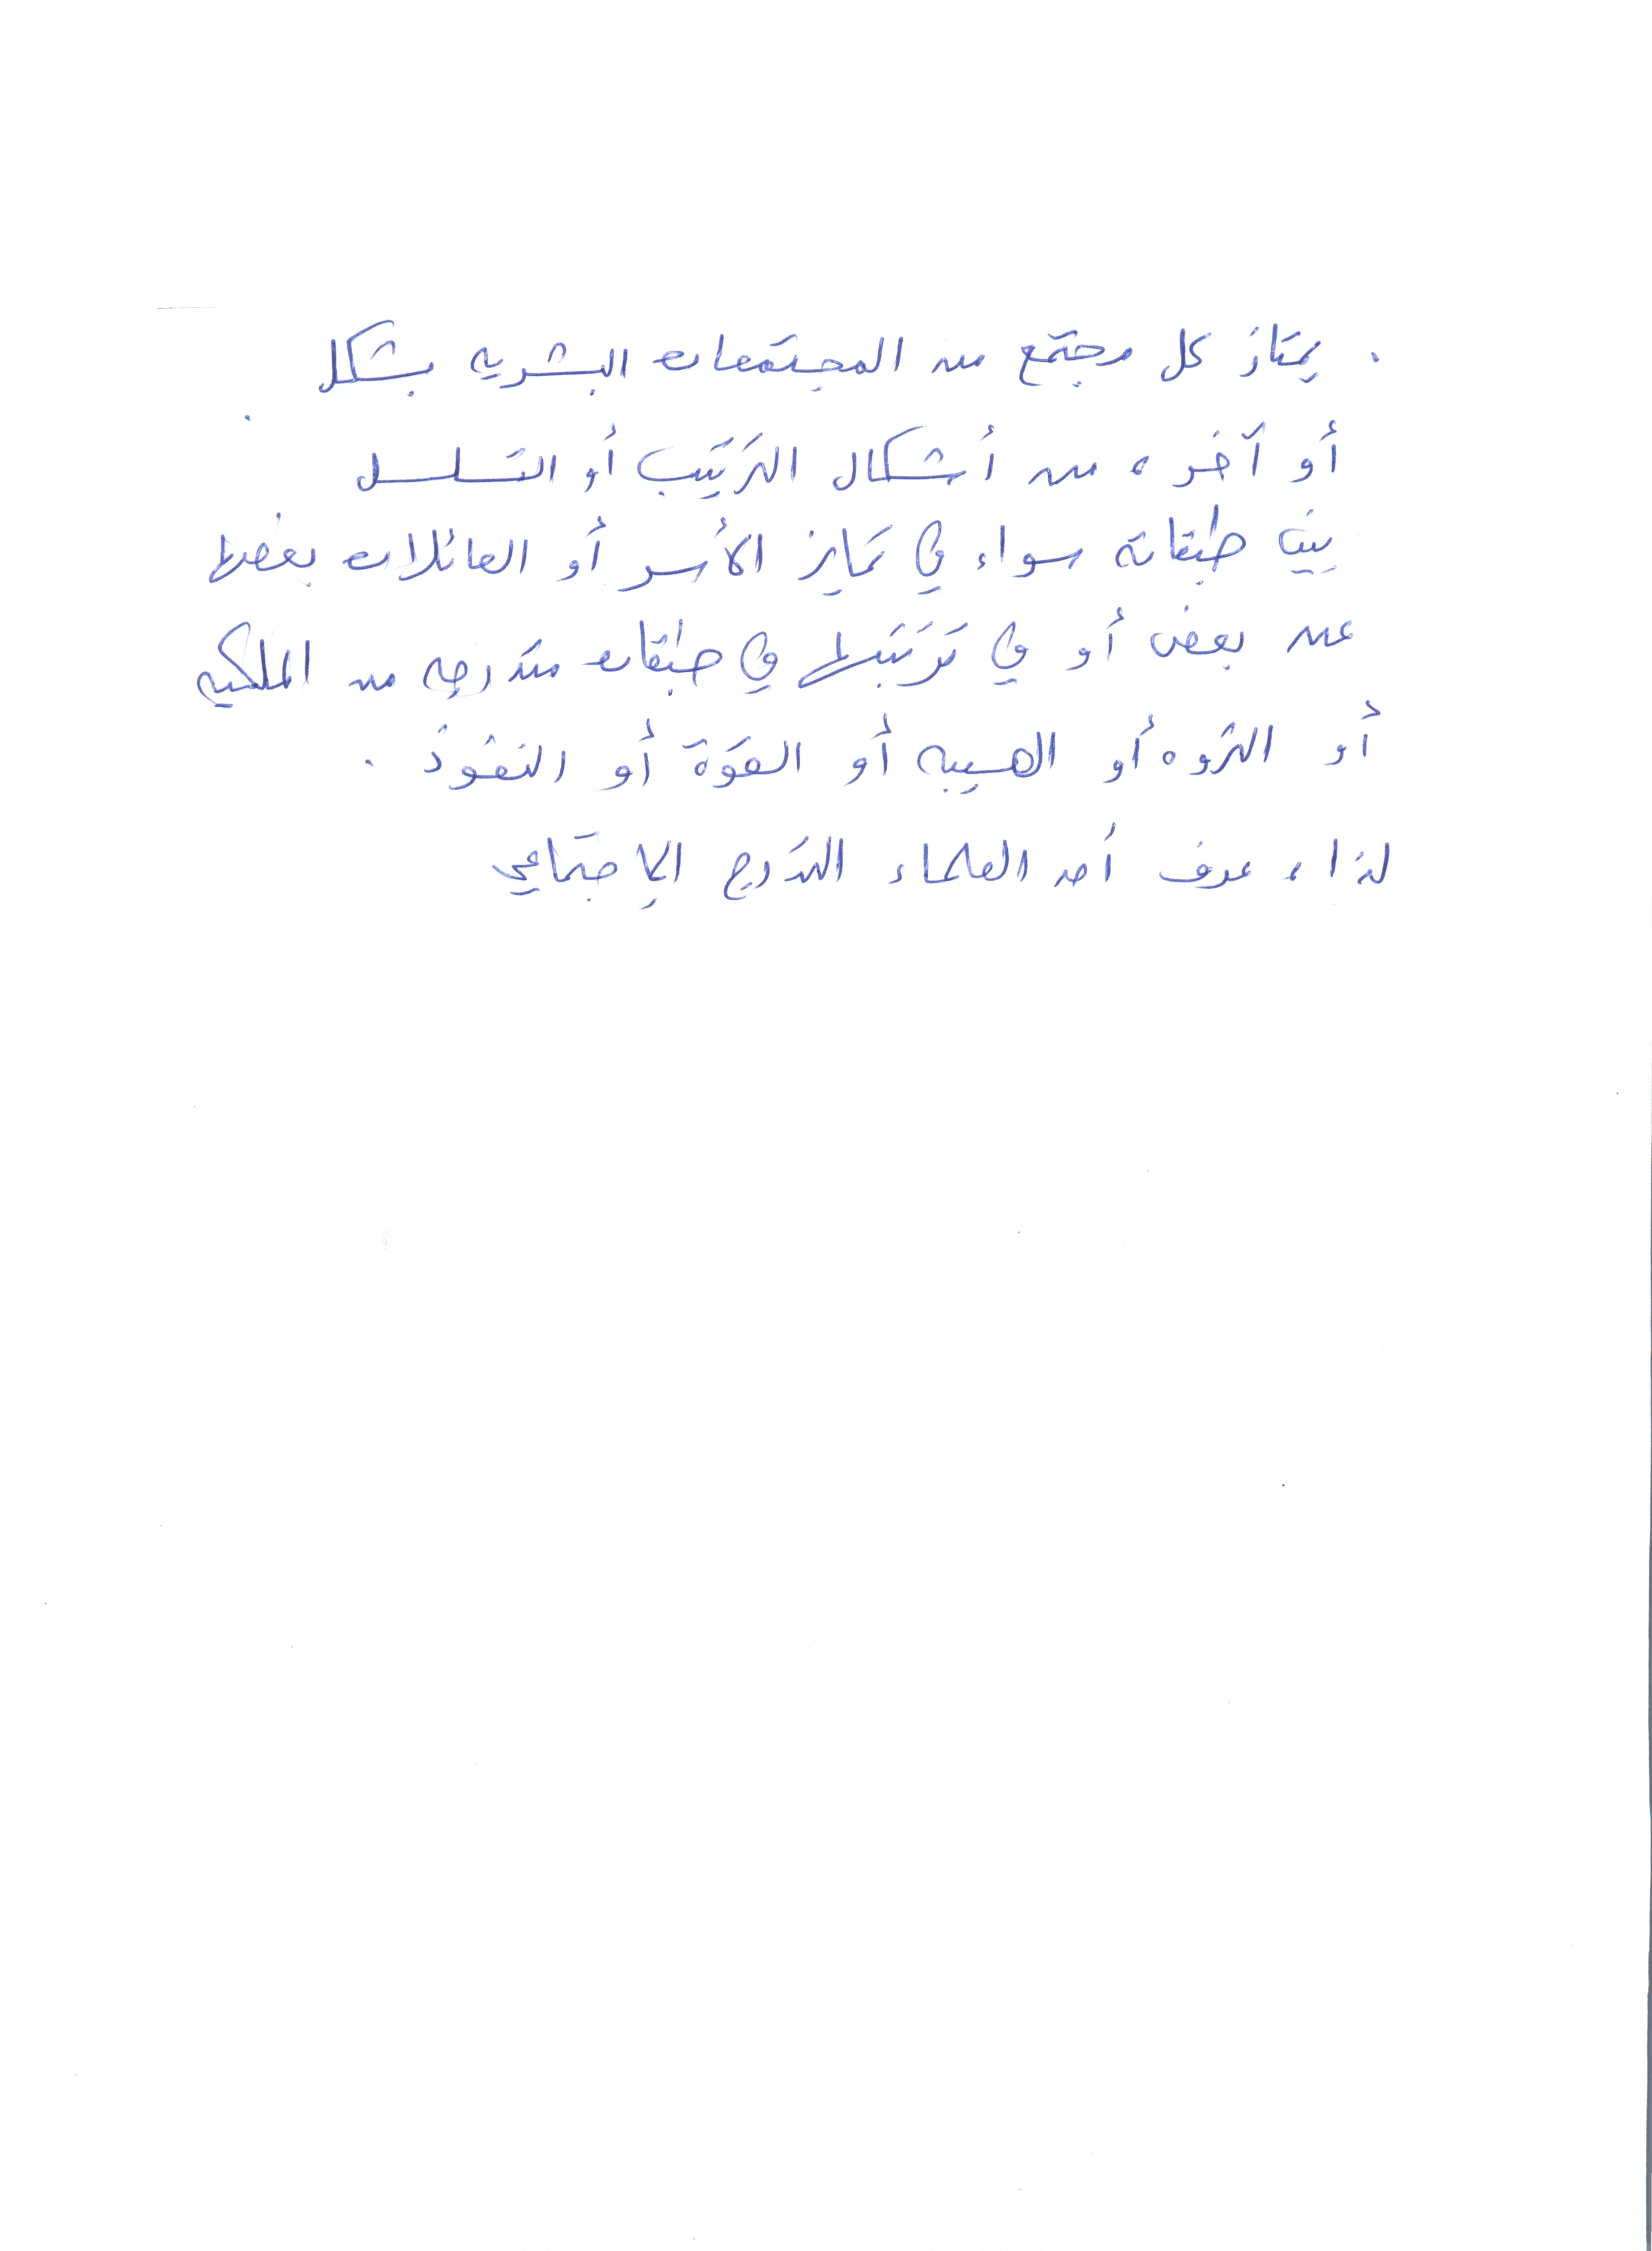 . يمتاز كل مجتمع من المجتمعات البشريه بشكل
أو آخر ، من أشكال الترتيب أو التسلسل
بين طبقاته سواء في تمايز الأسر أو العائلات بعضها
عن بعض أو في ترتيبها في طبقات متدرجه من الملكيه
أو الثروه أو الهيبه أو القوة أو النفوذ .
لذا ، عرف أحد العلماء التدرج الإجتماعي